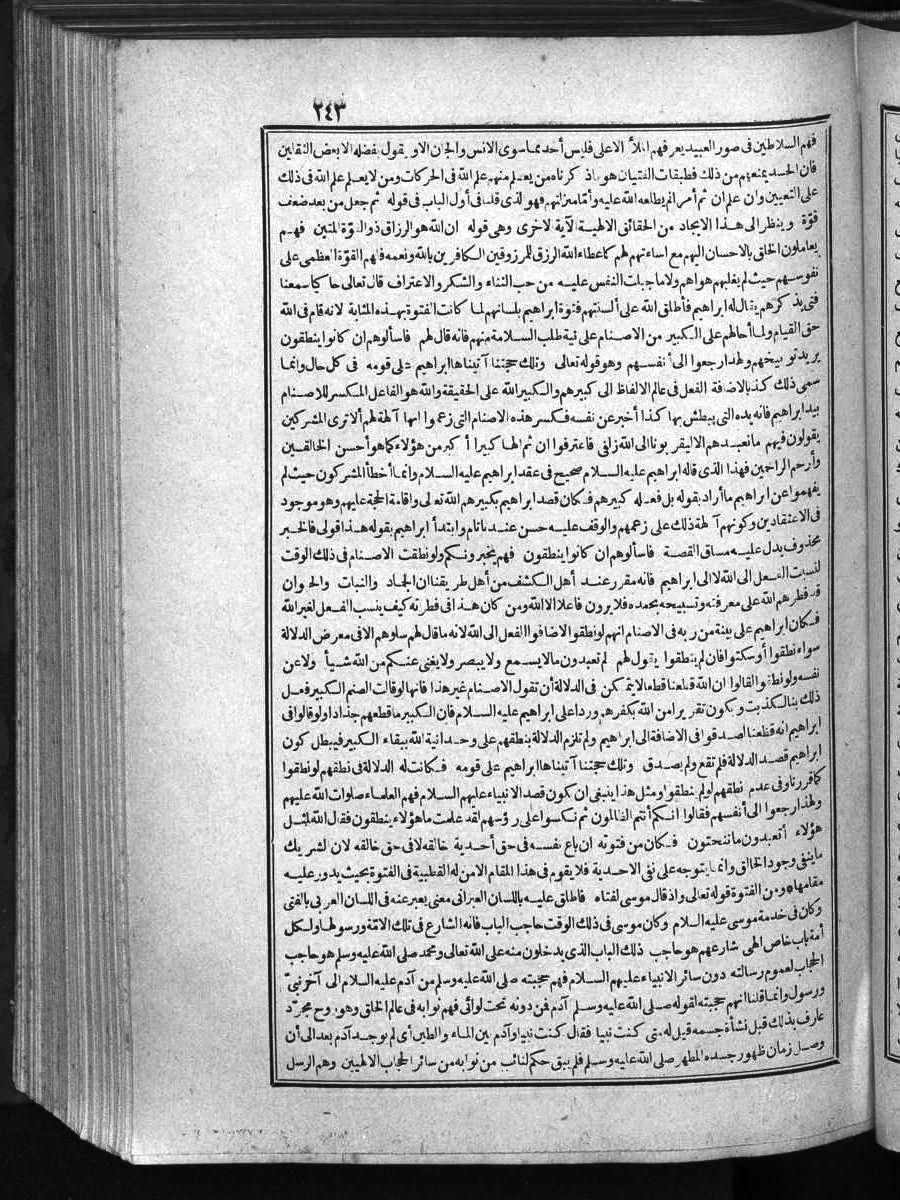 ٢٤٣
فهم السلاطين فى صور العبيد يعرفهم الملأ الاعلى فليس أحد مما سوى الانس والجان الا ويقول بفضله الا بعض الثقلين
فان الحسد يمنعهم من ذلك فطبقات الفتيان هو ما ذكرناه من يعلم منهم علم الله فى الحركات ومن لا يعلم علم الله فى ذلك
على التعيين وان علم ان ثم أمرا لم يطلعه الله عليه وأما منزلتهم فهو الذى قلنا فى أول الباب فى قوله ثم جعل من بعد ضعف
قوّة وينظر الى هذا الايجاد من الحقائق الالهية الآية لاخرى وهى قوله ان الله هو الرزاق ذو القوّة المتين فهم
يعاملون الخلق بالاحسان اليهم مع اساءتهم لهم كاعطاء الله الرزق للمرزوقين الكافرين بالله ونعمه فلهم القوّة العظمى على
نفوسهم حيث لم يغلبهم هواهم ولا ما جبلت النفس عليه من حب الثناء والشكر والاعتراف قال تعالى حا كيا سمعنا
فتى يذكرهم يقال له ابراهيم فأطلق الله على ألسنتهم فتوة ابراهيم بلسانهم لما كانت الفتوة بهذه المثابة لانه قام فى الله
حق القيام ولما أحالهم على الكبير من الاصنام على نية طلب السلامة منهم فانه قال لهم فاسألوهم ان كانوا ينطقون
يريد توبيخهم ولهذا رجعوا الى أنفسهم وهو قوله تعالى وتلك حجتنا آتيناها ابراهيم على قومه فى كل حال وانما
سمى ذلك كذبا لاضافة الفعل فى عالم الالفاظ الى كبيرهم والكبير الله على الحقيقة والله هو الفاعل المكسر للاصنام
بيد ابراهيم فانه يده التى يبطش بها كذا أخبر عن نفسه فكسر هذه الاصنام التى زعموا انها آلهة لهم ألا ترى المشركين
يقولون فيهم ما نعبدهم الا ليقربونا الى الله زلفى فاعترفوا ان ثم الها كبيرا أكبر من هؤلاء كما هو أحسن الخالقين
وأرحم الراحمين فهذا الذى قاله ابراهيم عليه السلام صحيح فى عقد ابراهيم عليه السلام وانما أخطأ المشركون حيث لم
يفهموا عن ابراهيم ما أراد بقوله بل فعله كبيرهم فكان قصد ابراهيم بكبيرهم الله تعالى واقامة الحجة عليهم وهو موجود
فى الاعتقادين وكونهم آلهة ذلك على زعمهم والوقف عليه حسن عندنا تام وابتدأ ابراهيم بقوله هذا قولى فالخبر
محذوف يدل عليه مساق القصة فاسألوهم ان كانوا ينطقون فهم يخبرونكم ولو نطقت الاصنام فى ذلك الوقت
لنسبت الفعل الى الله لا الى ابراهيم فانه مقرر عند أهل الكشف من أهل طريقنا ان الجماد والنبات والحيوان
قد فطرهم الله على معرفته وتسبيحه بحمده فلا يرون فاعلا الا الله ومن كان هذا فى فطرته كيف ينسب الفعل لغير الله
فكان ابراهيم على بينة من ربه فى الاصنام انهم لو نطقوا الاضافوا الفعل الى الله لانه ما قال لهم سلوهم الا فى معرض الدلالة
سواء نطقوا أوسكتوا فان لم ينطقوا يقول لهم لم تعبدون ما لا يسمع ولا يبصر ولا يغنى عنكم من الله شيأ ولا عن
نفسه ولو نطقوا لقالوا ان الله قطعنا قطعا لا يتمكن فى الدلالة أن تقول الاصنام غير هذا فانها لو قالت الصنم الكبير فعل
ذلك بنا لكذبت ويكون تقريرا من الله بكفرهم وردا على ابراهيم عليه السلام فان الكبير ما قطعهم جذاذا ولو قالوا فى
ابراهيم انه قطعنا لصدقوا فى الاضافة الى ابراهيم ولم تلزم الدلالة بنطقهم على وحدانية الله ببقاء الكبير فيبطل كون
ابراهيم قصد الدلالة فلم تقع ولم يصدق وتلك حجتنا آتيناها ابراهيم على قومه فكانت له الدلالة فى نطقهم لو نطقوا
كما قررنا وفى عدم نطقهم لو لم ينطقوا ومثل هذا ينبغى ان يكون قصد الانبياء عليهم السلام فهم العلماء صلوات الله عليهم
ولهذا رجعوا الى أنفسهم فقالوا انكم أنتم الظالمون ثم نكسوا على رؤسهم لقد علمت ما هؤلاء ينطقون فقال الله لمثل
هؤلاء أتعبدون ما تنحتون فكان من فتوته ان باع نفسه فى حق أحدية خالقه لا فى حق خالقه لان الشريك
ما ينفى وجود الخالق وانما يتوجه على نفى الاحدية فلا يقوم فى هذا المقام الامن له القطبية فى الفتوة بحيث يدور عليه
مقامها ومن الفتوة قوله تعالى واذ قال موسى لفتاه فاطلق عليه باللسان العبرانى معنى يعبر عنه فى اللسان العربى بالفتى
وكان فى خدمة موسى عليه السلام وكان موسى فى ذلك الوقت حاجب الباب فانه الشارع فى تلك الامّة ورسولها ولكل
أمة باب خاص الهى شارعهم هو حاجب ذلك الباب الذى يدخلون منه على الله تعالى ومحمد صلى الله عليه وسلم هو حاجب
الحجاب لعموم رسالته دون سائر الانبياء عليهم السلام فهم حجبته صلى الله عليه وسلم من آدم عليه السلام الى آخر نبىّ
ورسول وانما قلنا انهم حجبته لقوله صلى الله عليه وسلم آدم فمن دونه تحت لوائى فهم نوابه فى عالم الخلق وهو روح مجرّد
عارف بذلك قبل نشأة جسمه قيل له متى كنت نبيا فقال كنت نبيا وآدم بين الماء والطين أى لم يوجد آدم بعد الى أن
وصل زمان ظهور جسده المطهر صلى الله عليه وسلم فلم يبق حكم لنائب من نوابه من سائر الحجاب الالهيين وهم الرسل